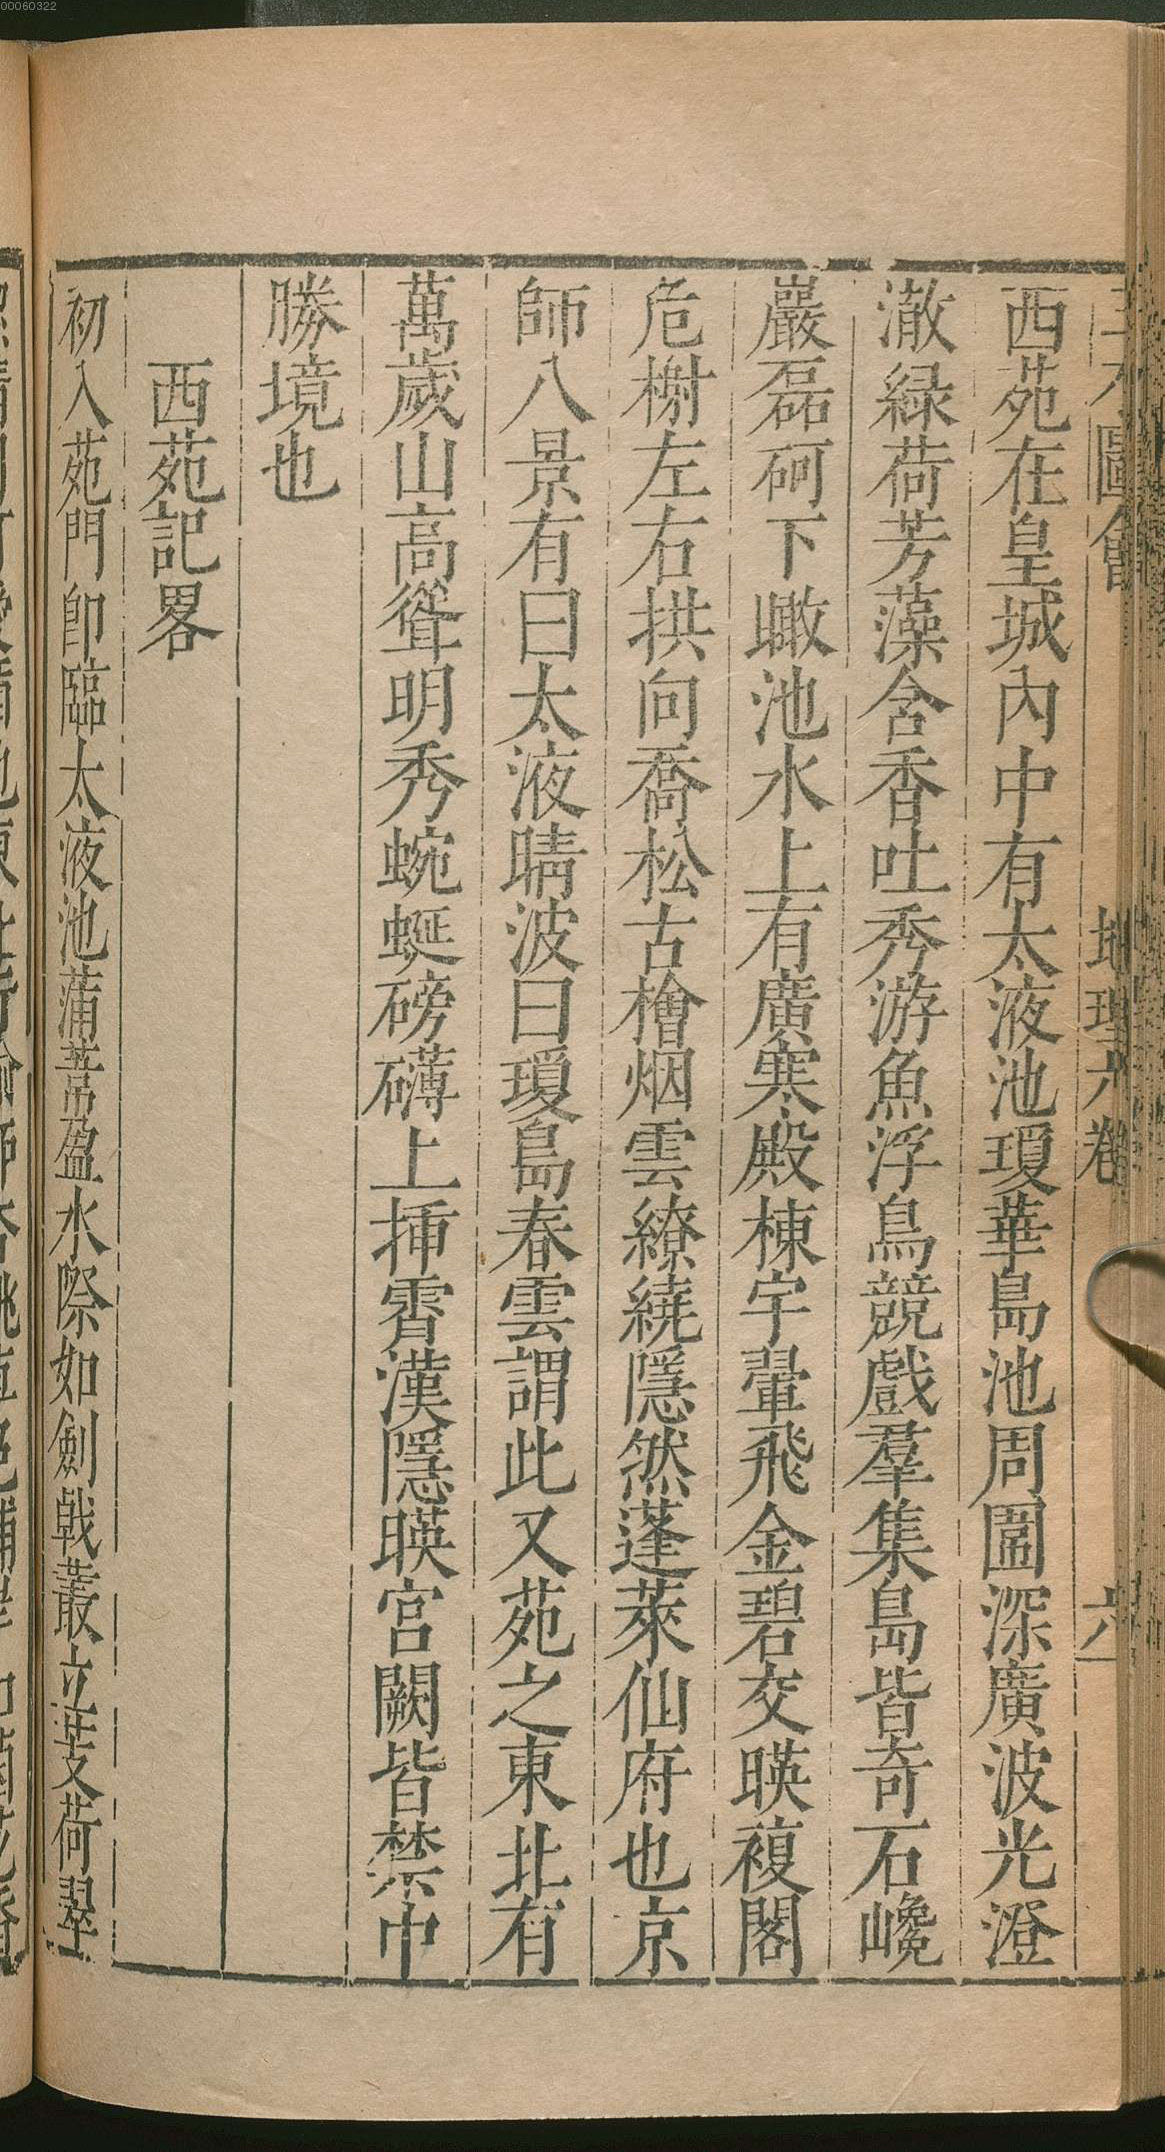 00060322
三才圖會 地理六卷 六
西苑在皇城內中有太液池瓊華島池周圍深廣波光澄
澈緑荷芳藻含香吐秀游魚浮鳥競戲羣集島皆奇石巉
巖磊砢下瞰池水上有廣寒殿棟宇翬飛金碧交暎複閣
危榭左右拱向喬松古檜烟雲繚繞隱然蓬萊仙府也京
師八景有曰太液晴波曰瓊島春雲謂此又苑之東北有
萬歲山高聳明秀蜿蜒磅礴上揷霄漢隱暎宮闕皆禁中
勝境也
西苑記畧
初入苑門卽臨太液池蒲葦盈水際如劍戟叢立芰荷翠